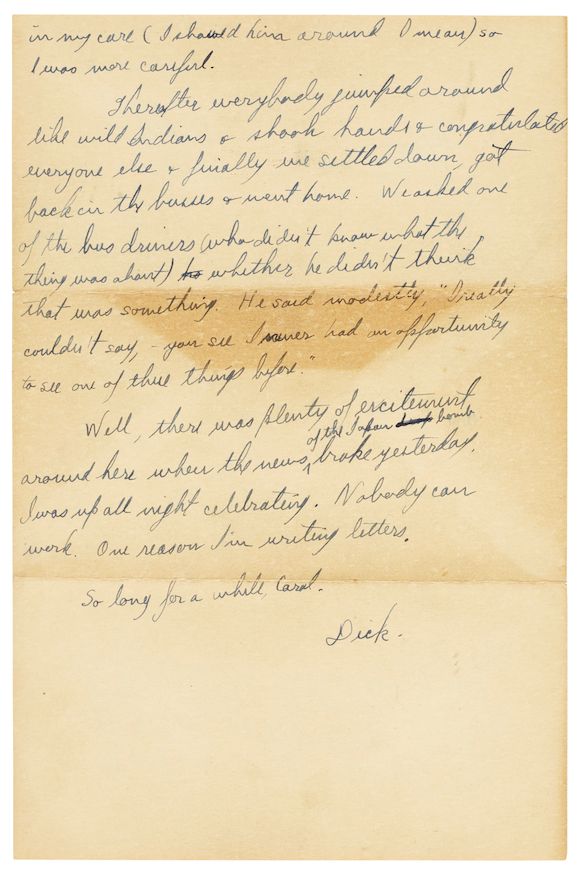 in my care (I showed him around I mean) so
I was more careful.
Thereafter everybody jumped around
like wild Indians & shook hands & congratulated
everyone else & finally we settled down, got
back in the busses & went home. We asked one
of the bus drivers (who didn't know what the
thing was about) whether he didn't think
that was something. He said modestly, "I really
couldn't say, - you see I never had an opportunity
to see one of these things before."
Well, there was plenty of excitement
of the Japan bomb
around here when the news broke yesterday.
I was up all night celebrating. Nobody can
work. One reason I'm writing letters.
So long for a while, Carol.
Dick.